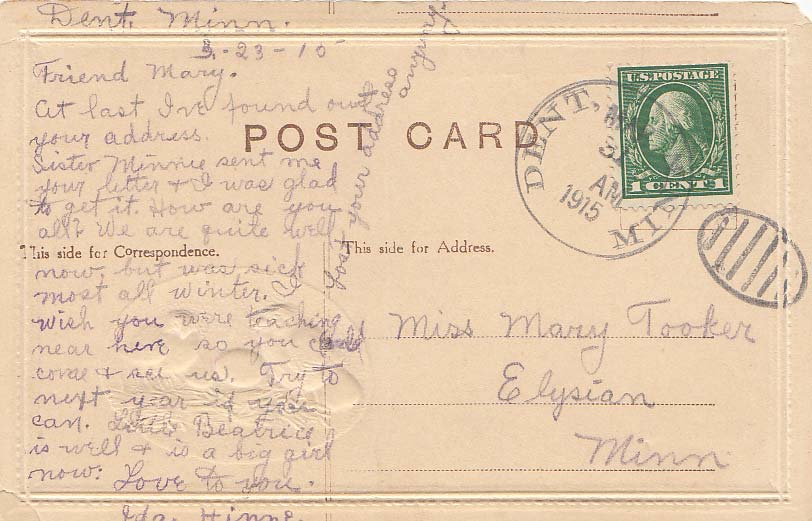 Dent, Minn.
3-23-15
Friend Mary.
At last I've found out
your address.
Sister Minnie sent me
your letter & I was glad
to get it. How are you
all? We are quite well
now, but was sick
most all winter. I
wish you were teaching
near here so you could
come & see us. Try to
next year if you
can. Little Beatrice
is well & is a big girl
now. Love to you.
Ida Hinne.
Lost your address
POST CARD
This side for Correspondence.
This side for Address.
U.S. POSTAGE
1 CENT 1
DENT, MI
AM
1915
Miss Mary Tooker
Elysian
Minn